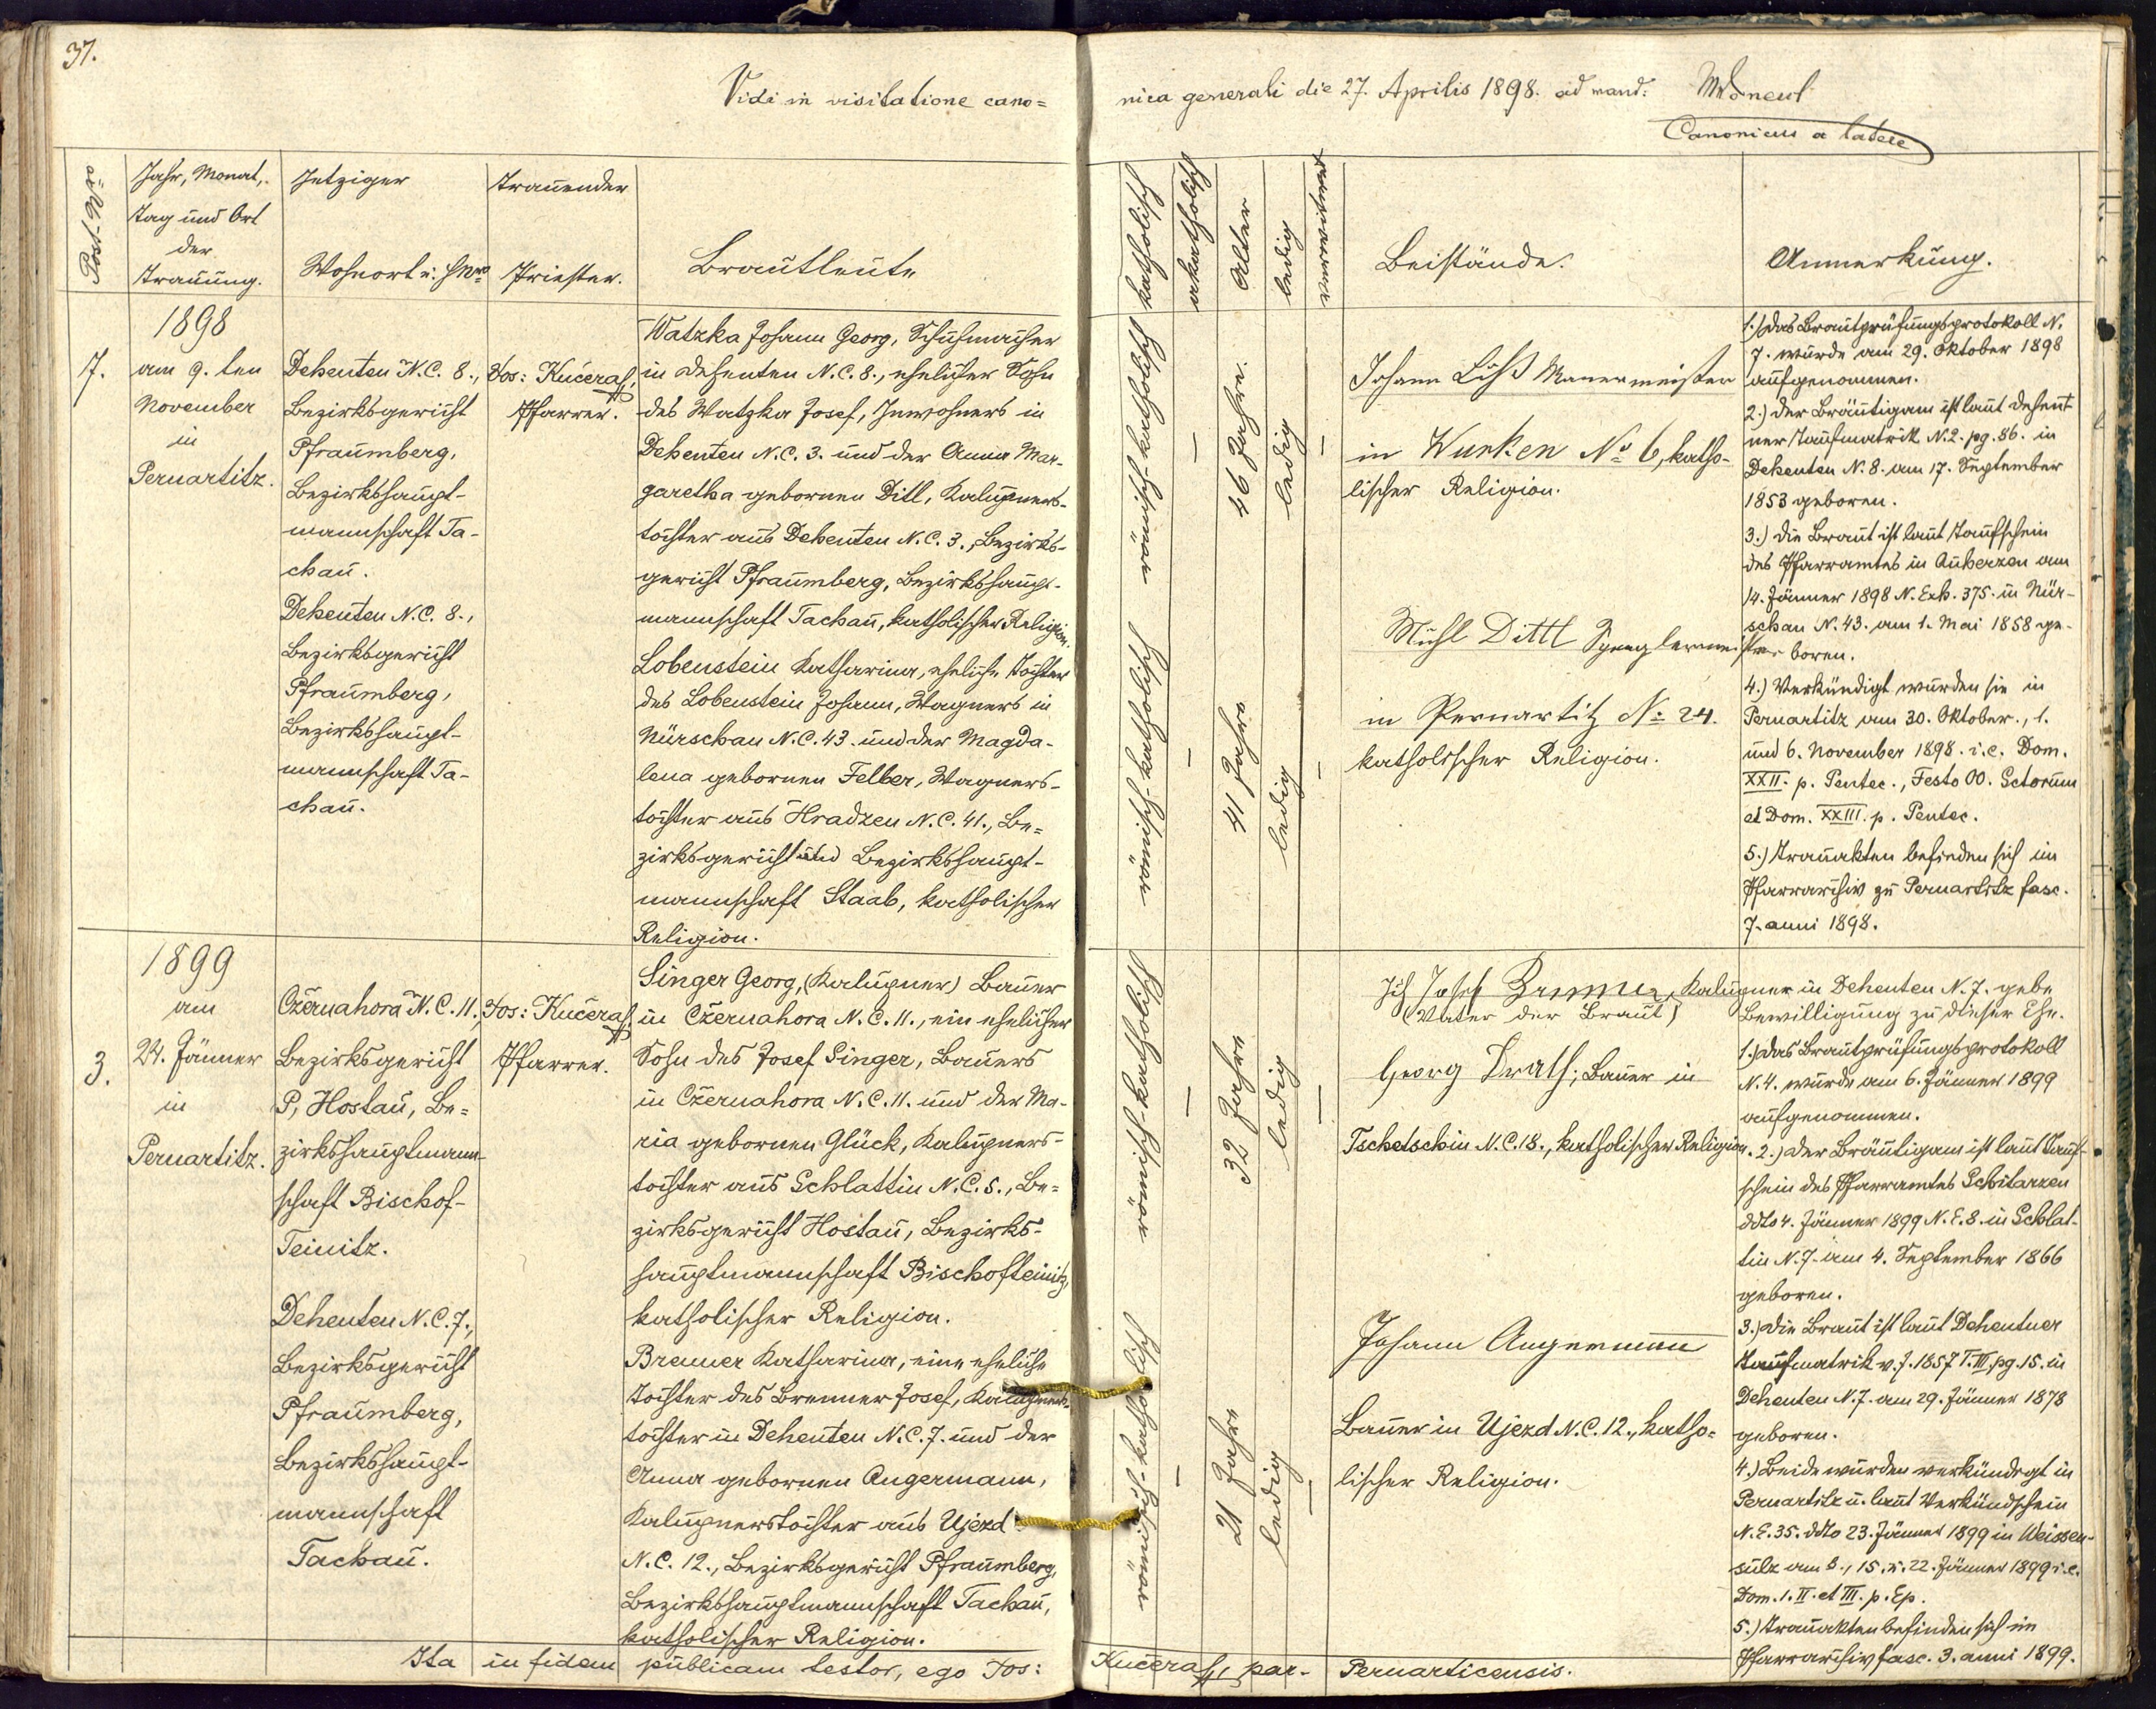 37.
Vidi in visitatione cano=
nica generali die 27. Aprilis 1898. ad mand:
Canonicus a latere
Post-Nro
Jahr, Monat,
Tag und Ort
der
Trauung.
Jetziger
Wohnort u. HNro
Trauender
Priester.
Brautleute
katholisch
akatholisch
Alter
ledig
verwitwet
Beistände.
Anmerkung.
7.
1898
am 9. ten
November
in
Pernartitz.
Dehenten N.C. 8.,
Bezirksgericht
Pfraumberg,
Bezirkshaupt-
mannschaft Ta-
chau.
Dehenten N.C. 8.,
Bezirksgericht
Pfraumberg,
Bezirkshaupt-
mannschaft Ta-
chau.
Jos: Kučera
Pfarrer.
Watzka Johann Georg, Schuhmacher
in Dehenten N.C. 8., ehelicher Sohn
des Watzka Josef, Inwohners in
Dehenten N.C. 3. und der Anna Mar-
garetha gebornen Ditl, Kaluppners-
tochter aus Dehenten N.C. 3., Bezirks-
gericht Pfraumberg, Bezirkshaupt-
mannschaft Tachau, katholischer Religion.
Lobenstein Katharina, eheliche Tochter
des Lobenstein Johann, Wagners in
Nürschau N.C. 43. und der Magda-
lena gebornen Felber, Wagners-
tochter aus Hradzen N.C. 41., Be=
zirksgericht und Bezirkshaupt-
mannschaft Staab, katholischer
Religion.
römisch-katholisch
—
46 Jahre.
ledig
—
römisch-katholisch
—
41 Jahre
ledig
—
Johann Löhs Maurermeister
in Wurken No 6, katho-
lischer Religion.
Michl Dittl Spenglermeister
in Pernartitz No 24.
katholischer Religion.
1.) Das Brautprüfungsprotokoll N.
7. wurde am 29. Oktober 1898
aufgenommen.
2.) Der Bräutigam ist laut Dehent-
ner Taufmatrik N.2. pg. 86. in
Dehenten N. 8. am 17. September
1853 geboren.
3.) Die Braut ist laut Taufschein
des Pfarramtes in Auherzen am
14. Jänner 1898 N. Exh. 375. in Nür-
schau N. 43. am 1. Mai 1858 ge-
boren.
4.) Verkündigt wurden sie in
Pernartitz am 30. Oktober., 1.
und 6. November 1898. i.e. Dom.
XXII. p. Pentec., Festo OO. Sctorum
et Dom. XXIII. p. Pentec.
5.) Trauakten befinden sich im
Pfarrarchiv zu Pernartitz fasc.
7. anni 1898.
3.
1899
am
24. Jänner
in
Pernartitz.
Czernahora N.C. 11.,
Bezirksgericht
P, Hostau, Be=
zirkshauptmann-
schaft Bischof-
Teinitz.
Dehenten N.C. 7.,
Bezirksgericht
Pfraumberg,
Bezirkshaupt-
mannschaft
Tachau.
Jos: Kučera
Pfarrer.
Singer Georg, (Kaluppner) Bauer
in Czernahora N.C. 11., ein ehelicher
Sohn des Josef Singer, Bauers
in Czernahora N.C. 11. und der Ma-
ria gebornen Glück, Kaluppners-
tochter aus Schlattin N.C. 5., Be=
zirksgericht Hostau, Bezirks-
hauptmannschaft Bischofteinitz,
katholischer Religion.
Brenner Katharina, eine eheliche
Tochter des Brenner Josef, Kaluppners-
tochter in Dehenten N.C. 7. und der
Anna gebornen Angermann,
Kaluppnerstochter aus Ujezd
N.C. 12., Bezirksgericht Pfraumberg,
Bezirkshauptmannschaft Tachau,
katholischer Religion.
römisch-katholisch
—
32 Jahre
ledig
—
römisch-katholisch
—
21 Jahre
ledig
—
Ich Josef Brenner, Kaluppner in Dehenten N. 7. gebe
(Vater der Braut) Bewilligung zu dieser Ehe.
Georg Drath, Bauer in
Tschetschin N.C. 18., katholischer Religion.
Johann Angermann
Bauer in Ujezd N.C. 12., katho=
lischer Religion.
1.) Das Brautprüfungsprotokoll
N. 4. wurde am 6. Jänner 1899
aufgenommen.
2.) Der Bräutigam ist laut Tauf-
schein des Pfarramtes Schitarzen
ddto 4. Jänner 1899 N.E. 8. in Schlat-
tin N. 7. am 4. September 1866
geboren.
3.) Die Braut ist laut Dehentner
Taufmatrik v. J. 1857 T. III. pg. 15. in
Dehenten N. 7. am 29. Jänner 1878
geboren.
4.) Beide wurden verkündigt in
Pernartitz u. laut Verkündschein
N.E. 35. ddto 23. Jänner 1899 in Weissen-
sulz am 8., 15. u. 22. Jänner 1899 i.e.
Dom. I. II. et III. p. Ep.
5.) Trauakten befinden sich im
Pfarrarchiv fasc. 3. anni 1899.
Ita in fidem publicam testor, ego Jos: Kučera par- Pernarticensis.